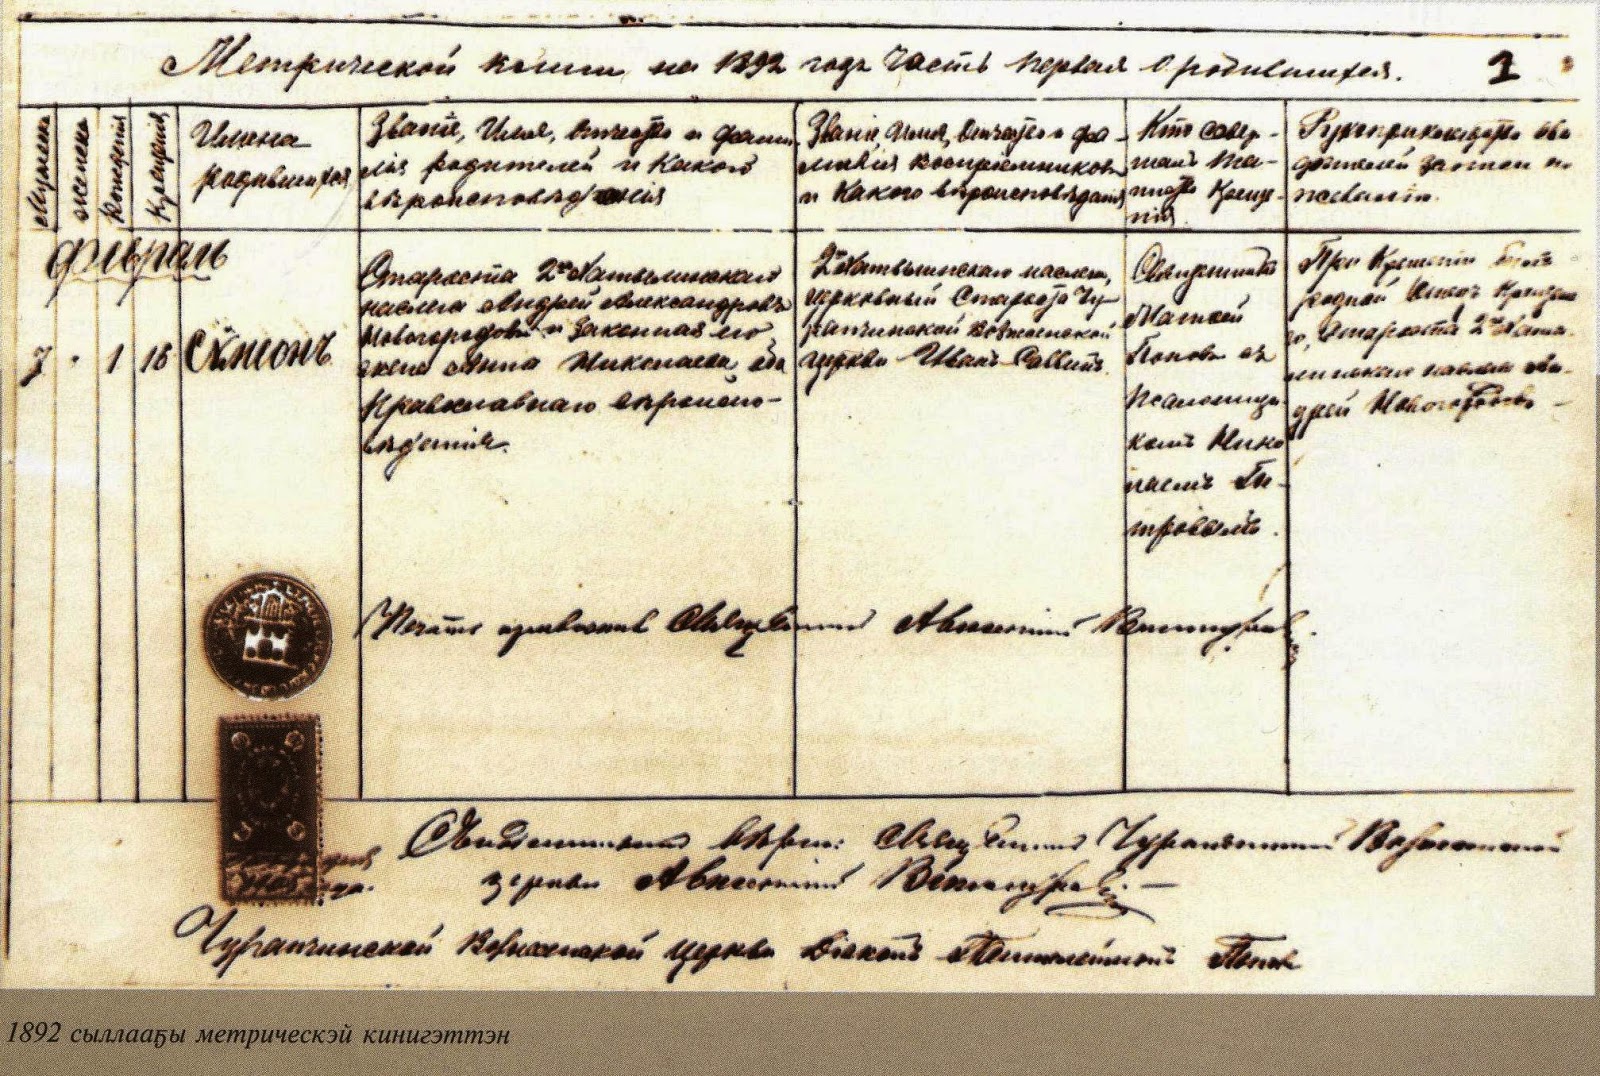 Метрической книги на 1892 годъ Часть первая О родившихся. 1
Мужеска
женска
Рожденія
Крещенія
Имена
родившихся
Званіе, Имя, Отчество и фами-
лія родителей и Какого
вѣроисповѣданія
Званіе, Имя, Отчество и фа-
милія воспріемниковъ
и Какого вѣроисповѣданія
Кто совер-
шалъ та-
инство Креще-
нія
Рукоприкладство сви
дѣтелей записи по
желанію.
февраль
7 1 16 Сѵмеонъ
Староста 2го Хатылинскаго
наслега Андрей Александровъ
Новогородовъ и законная его
жена Анна Николаева, оба
Православнаго вѣроиспо-
вѣданія.
2го Хатылинскаго наслега,
церковный Староста Чу-
рапчинской Вознесенской
церкви Иванъ Саввинъ.
Священникъ
Матѳей
Поповъ съ
Псаломщи-
комъ Нико
лаемъ
При Крещеніи былъ
родной Отецъ Крещаема-
го, Староста 2го Хаты-
линскаго наслега Ан-
дрей Новогородовъ
Печать приложилъ Священникъ Авксентій Винокуровъ.
Свидѣтельствовалъ вѣрно: Священникъ Чурапчинской Вознесенской
церкви Авксентій Винокуровъ. —
Чурапчинской Вознесенской церкви Діаконъ Поповъ
1892 сыллааҕы метрическэй кинигэттэн